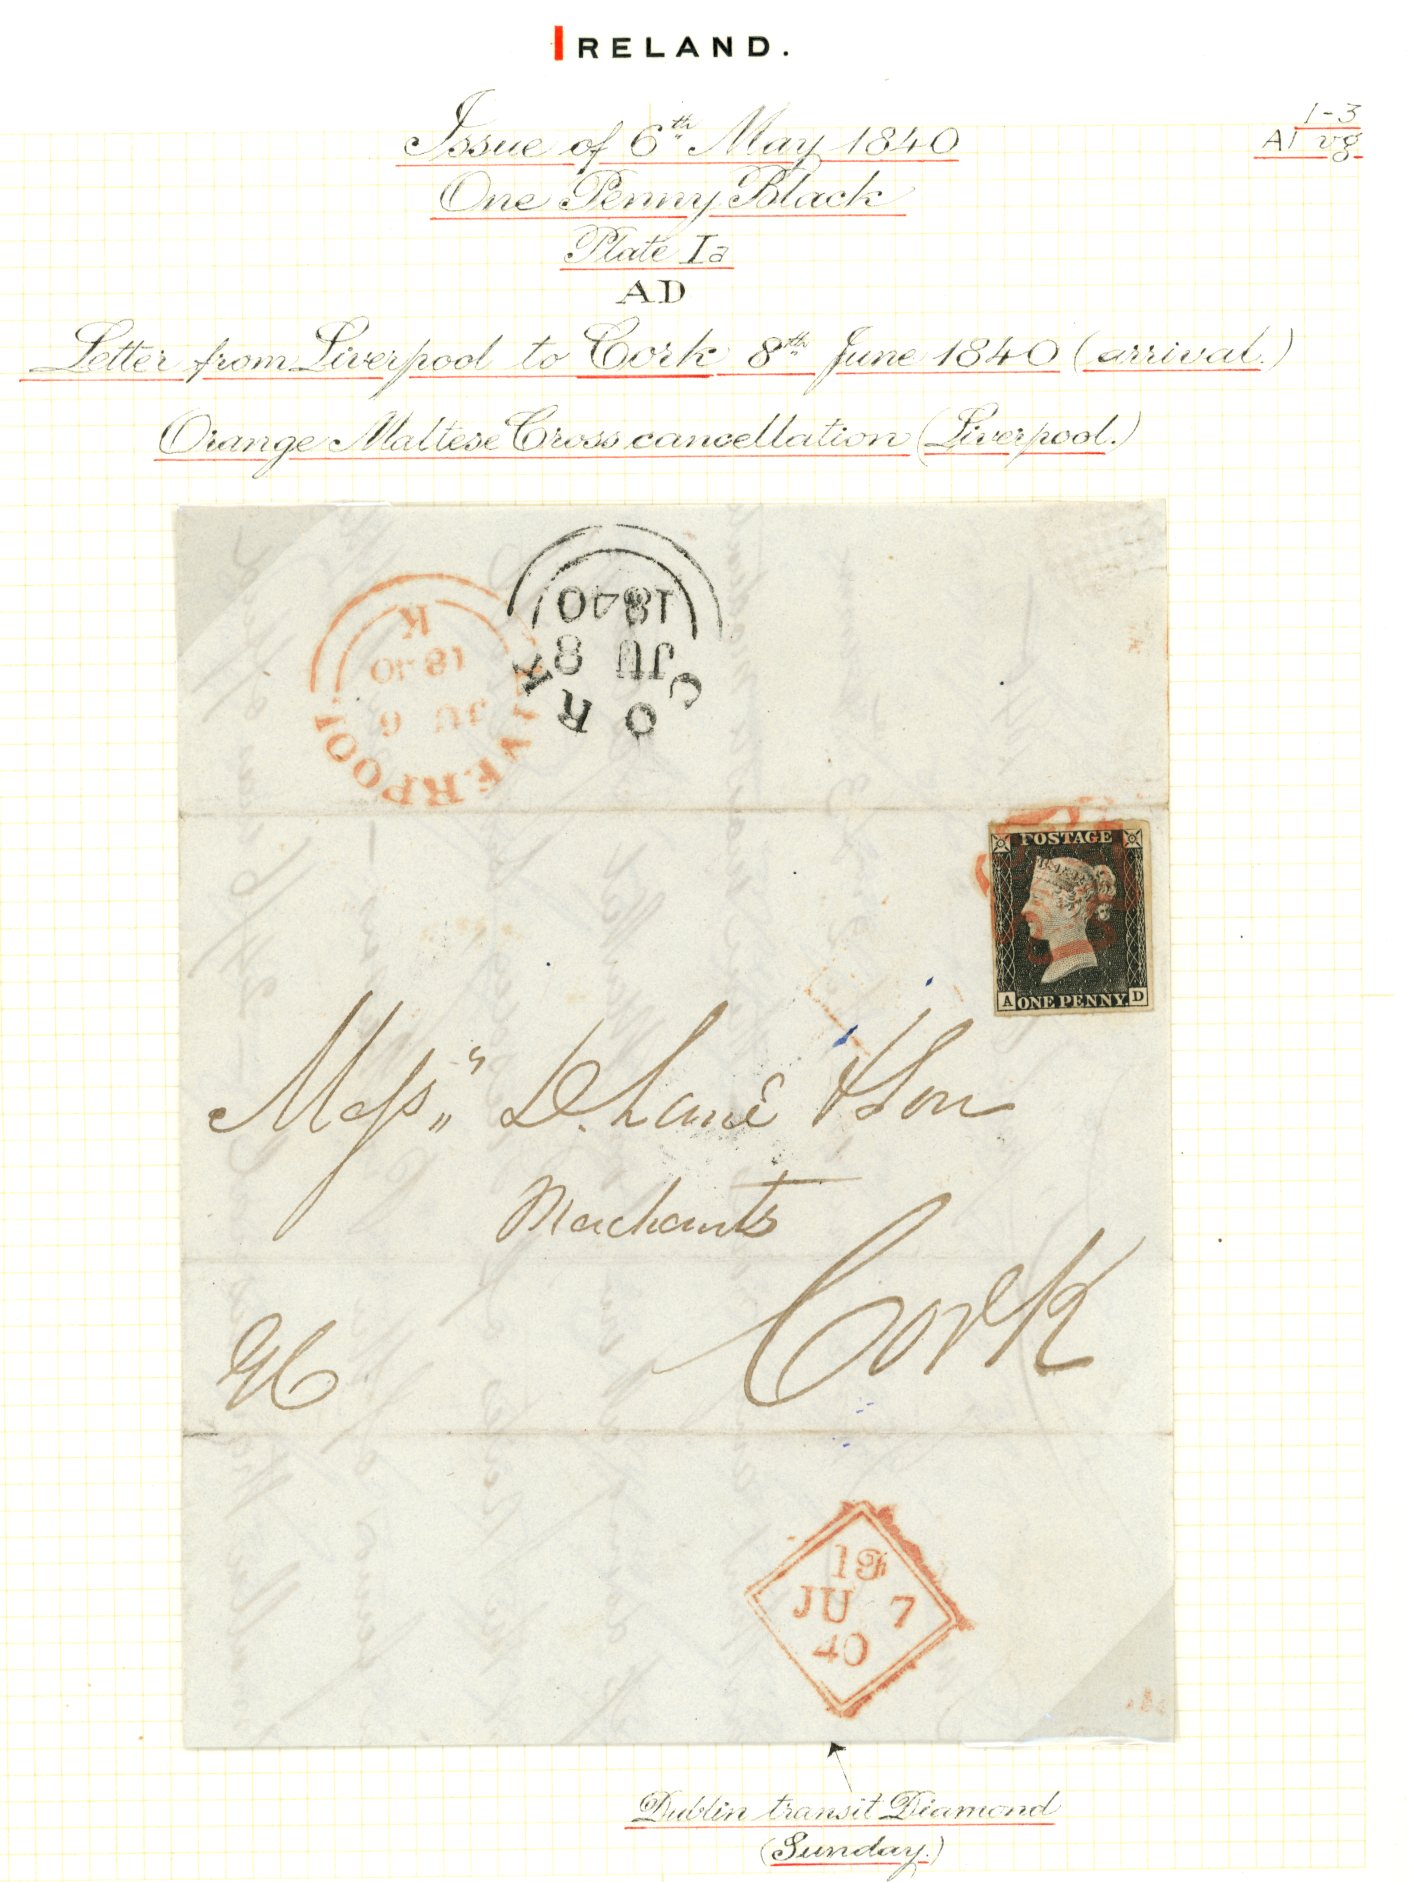 IRELAND.
1-3
A1 vg
Issue of 6th May 1840
One Penny Black
Plate Ia
AD
Letter from Liverpool to Cork 8th June 1840 (arrival.)
Orange Maltese Cross cancellation (Liverpool.)
CORK
JU 8
1840
LIVERPOOL
JU 6
1840
K
POSTAGE
A ONE PENNY. D
Messrs D. Lane & Son
Merchants
Cork
19
JU 7
40
Dublin transit Diamond
(Sunday.)